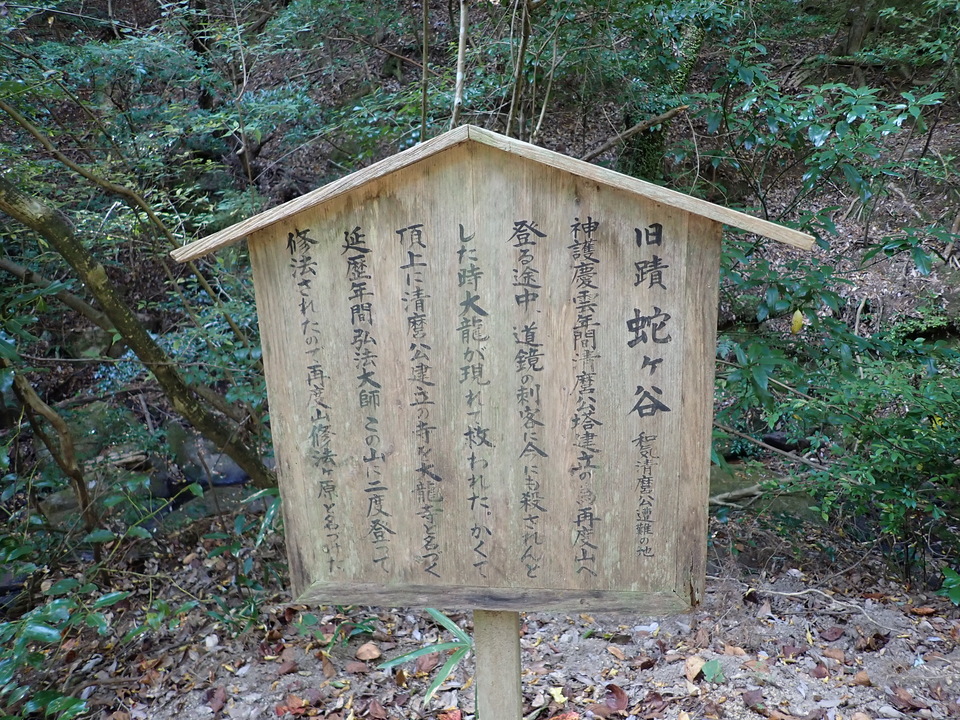 旧蹟 蛇ヶ谷 和気清磨公遭難の地
神護慶雲年間清磨公塔建立の為再度山へ
登る途中、道鏡の刺客に今にも殺されんと
した時大龍が現れて救われた。かくて
頂上に清磨公建立の寺を大龍寺と名づく
延歴年間弘法大師 この山に二度登って
修法されたので再度山修法ヶ原と名づけた